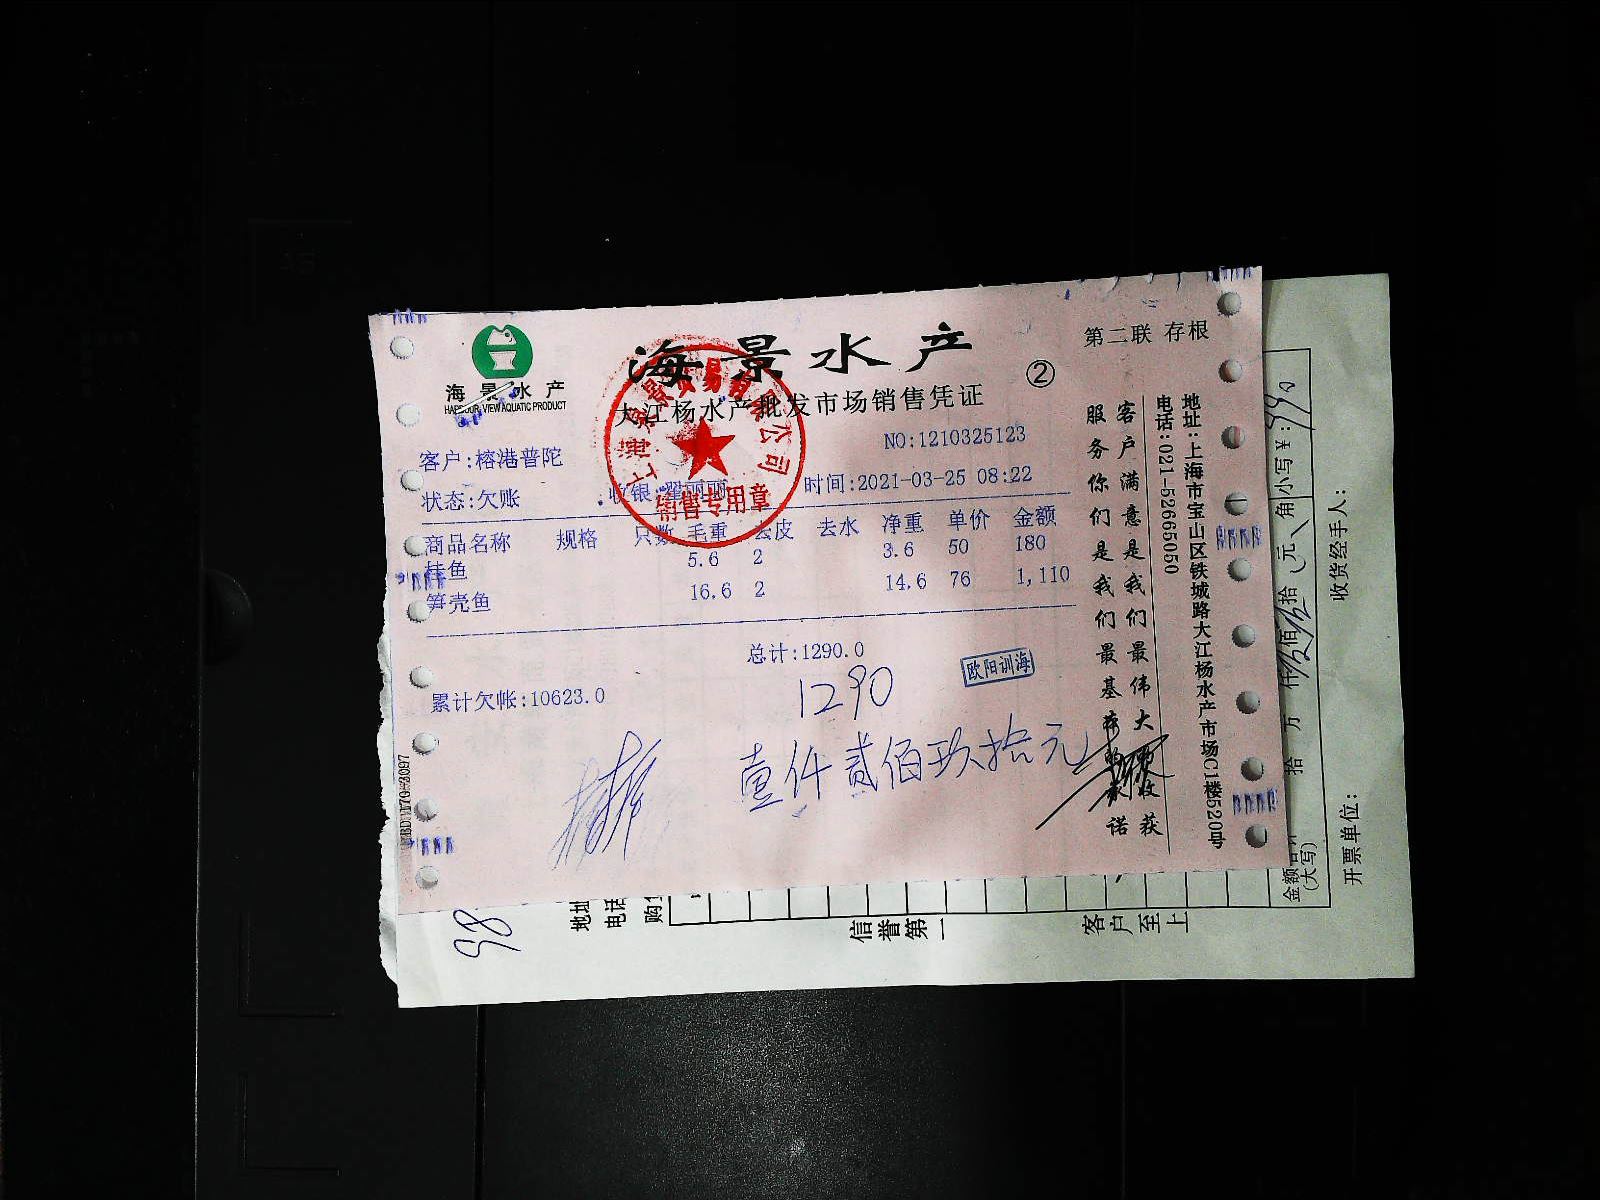 海景水产
HARBOUR VIEW AQUATIC PRODUCT
海景水产
大江杨水产批发市场销售凭证
②
第二联 存根
NO:1210325123
客户:榕港普陀
状态:欠账 收银:翟丽丽 时间:2021-03-25 08:22
商品名称 规格 只数 毛重 去皮 去水 净重 单价 金额
桂鱼 5.6 2 3.6 50 180
笋壳鱼 16.6 2 14.6 76 1,110
总计:1290.0
累计欠帐:10623.0
1290
欧阳训海
壹仟贰佰玖拾元
上海海景贸易有限公司
销售专用章
客户满意是我们最伟大的收获
服务你们是我们最基本的承诺
地址:上海市宝山区铁城路大江杨水产市场C1楼520号
电话:021-52665050
98
地址
电话
信誉第一
客户至上
金额合计
(大写)
拾 万 仟 佰 拾 元 角
小写¥:
开票单位:
收货经手人: